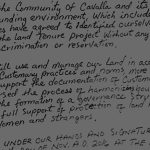 the Community of Cavalla and its
unding environment, which include
es have agreed to identified ourselve
the land Tenure project without any
crimination or reservation.
ill use and manage our land in acco
Customary practices and norms more
upport the documentation of Custom
nd the process of harmonizing
the formation of a governance stru
full support of protection of land r
women and strangers.
UNDER OUR HANDS AND SIGNATUR
OF NOV. A.D 2016 AT THE